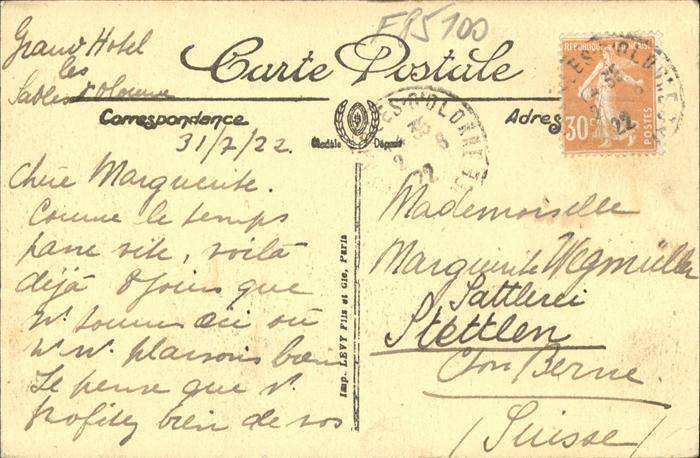 F95100
Grand Hotel
les
Sables d'Olonne
Carte Postale
Correspondance
Adres
Modèle Déposé
RÉPUBLIQUE FRANÇAISE
30
POSTES
LES-D'OLONNE
22
31/7/22.
Chère Marguerite.
Comme le temps
passe vite, voilà
déjà 8 jours que
ns. sommes ici où
ns. ns. plaisons bien
Je pense que v.
profitez bien de vos
Imp. LEVY Fils et Cie, Paris
Mademoiselle
Marguerite Wegmüller
Sattlerei
Stettlen
Cton Berne.
(Suisse)